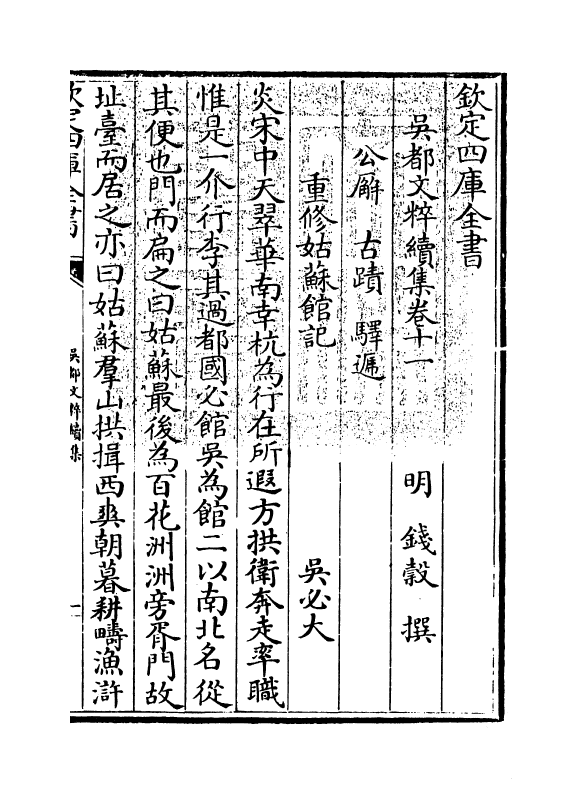 欽定四庫全書
吳都文粹續集卷十一
明 錢穀 撰
公廨 古蹟 驛遞
重修姑蘇館記 吳必大
炎宋中天翠華南幸杭為行在所遐方拱衛奔走率職
惟是一介行李其過都國必館吳為館二以南北名從
其便也門而扁之曰姑蘇最後為百花洲洲旁胥門故
址臺而居之亦曰姑蘇羣山拱揖西爽朝暮耕疇漁滸
欽定四庫全書
吳都文粹續集
一